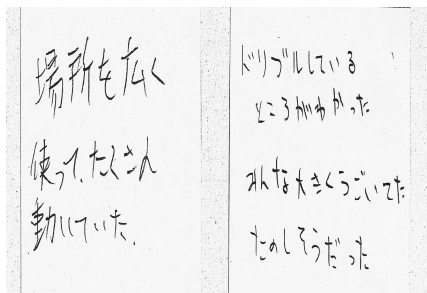 場所を広く
使って、たくさん
動いていた。
ドリブルしている
ところがわかった
みんな大きくうごいてた
たのしそうだった